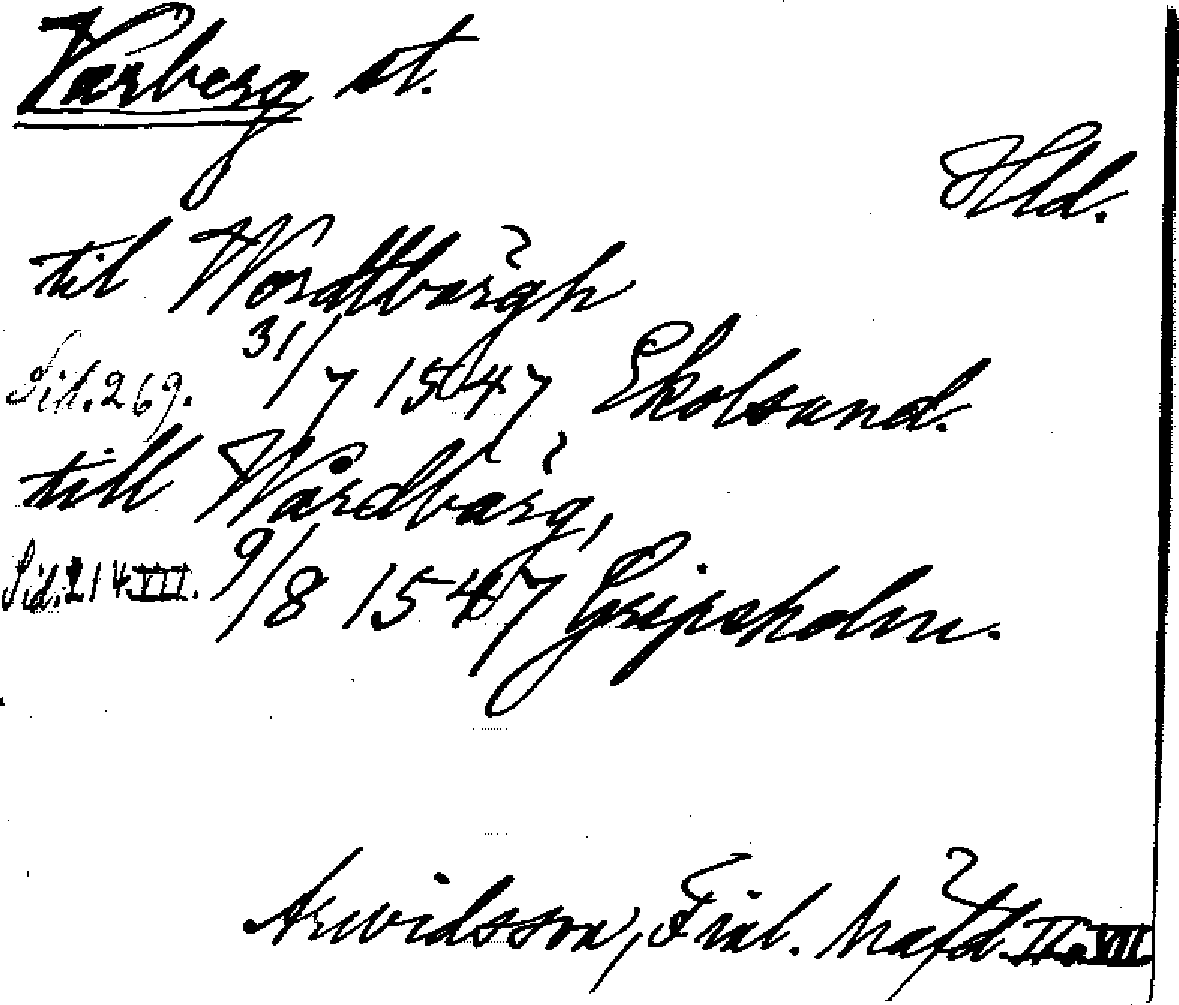 Varberg st.
Hld.
til Wordtbårgh
Sid. 269. 31/7 1547 Ekolsund.
till Wårdbårg,
Sid. 214 VII. 9/8 1547 Gripsholm.
Arwidsson, Finl. häfd. II o. VII